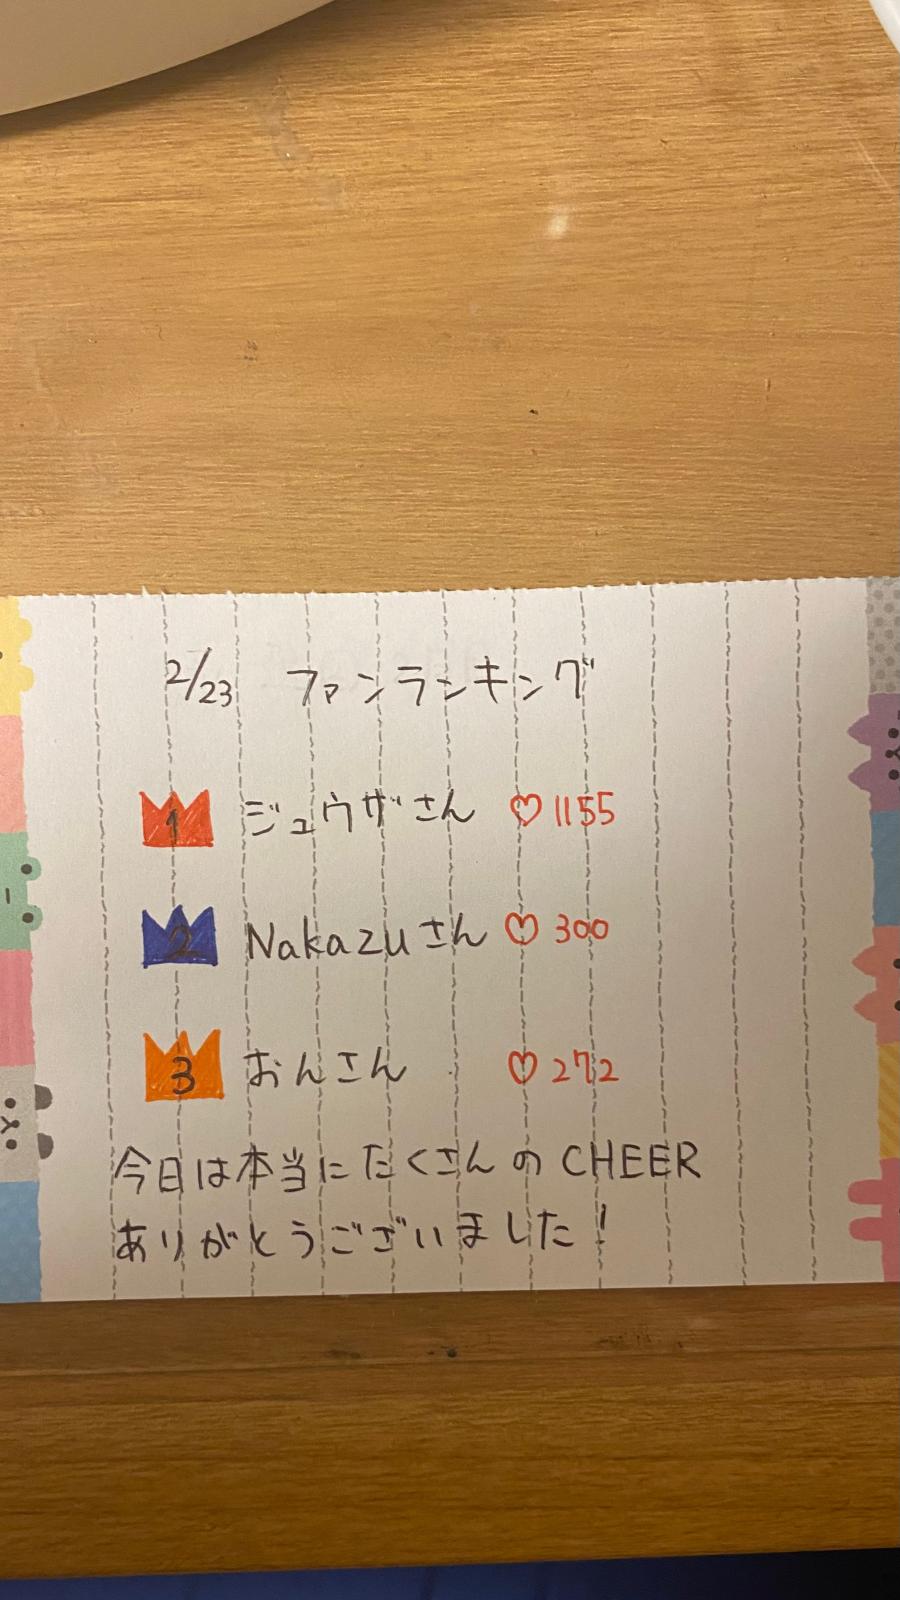 2/23 ファンランキング
1 ジュウザさん ♡ 1155
2 Nakazuさん ♡ 300
3 おんさん ♡ 272
今日は本当にたくさんのCHEER
ありがとうございました!